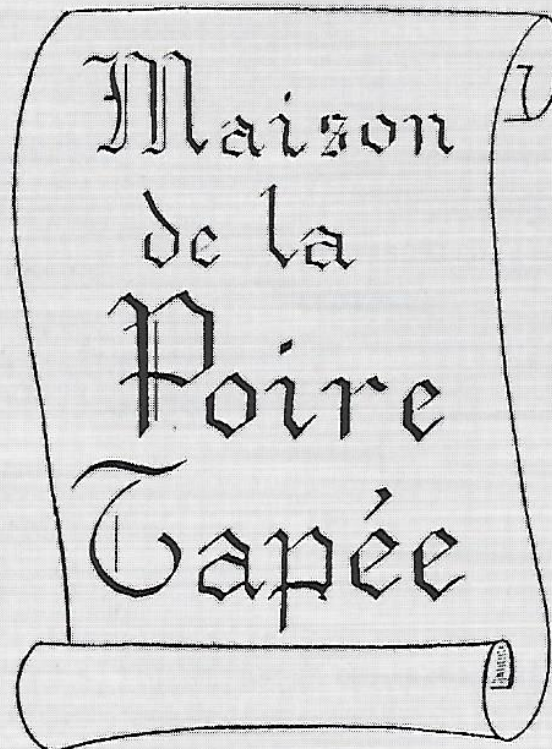 Maison
de la
Poire
Tapée